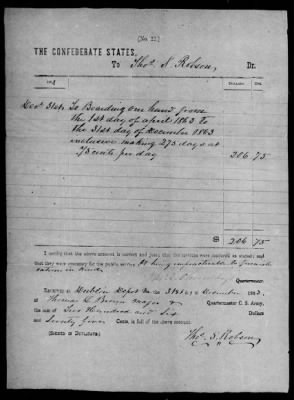 (No. 22.)
THE CONFEDERATE STATES,
To Thos. S. Robson, Dr.
186
DOLLARS. CENTS.
Decr 31st To Boarding one hand from
the 1st day of April 1863 to
the 31st day of December 1863
inclusive making 275 days at
75 cents per day 206 75
$ 206 75
I certify that the above account is correct and just; that the services were rendered as stated; and
that they were necessary for the public service, it being impracticable to furnish
ration in kind.
Quartermaster.
RECEIVED at Dublin Depot Va 31st of December 1863,
of Thomas L. Brown Major & Quartermaster C. S. Army,
the sum of Two Hundred and Six Dollars
and Seventy five Cents, in full of the above account.
(SIGNED IN DUPLICATE.)
Thos. S. Robson